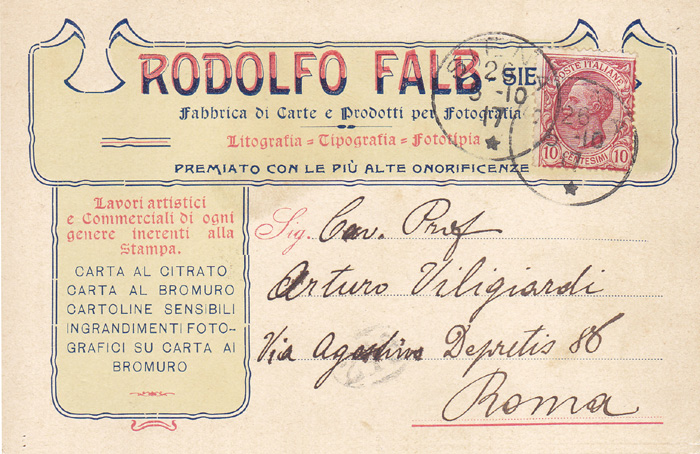 RODOLFO FALB SIE
Fabbrica di Carte e Prodotti per Fotografia
Litografia - Tipografia - Fototipia
PREMIATO CON LE PIÙ ALTE ONORIFICENZE
POSTE ITALIANE
10 CENTESIMI 10
26
3-10
17
26
10
Lavori artistici
e Commerciali di ogni
genere inerenti alla
Stampa.
CARTA AL CITRATO
CARTA AL BROMURO
CARTOLINE SENSIBILI
INGRANDIMENTI FOTO-
GRAFICI SU CARTA AI
BROMURO
Sig. Cav. Prof
Arturo Viligiardi
Via Agostino Depretis 86
Roma